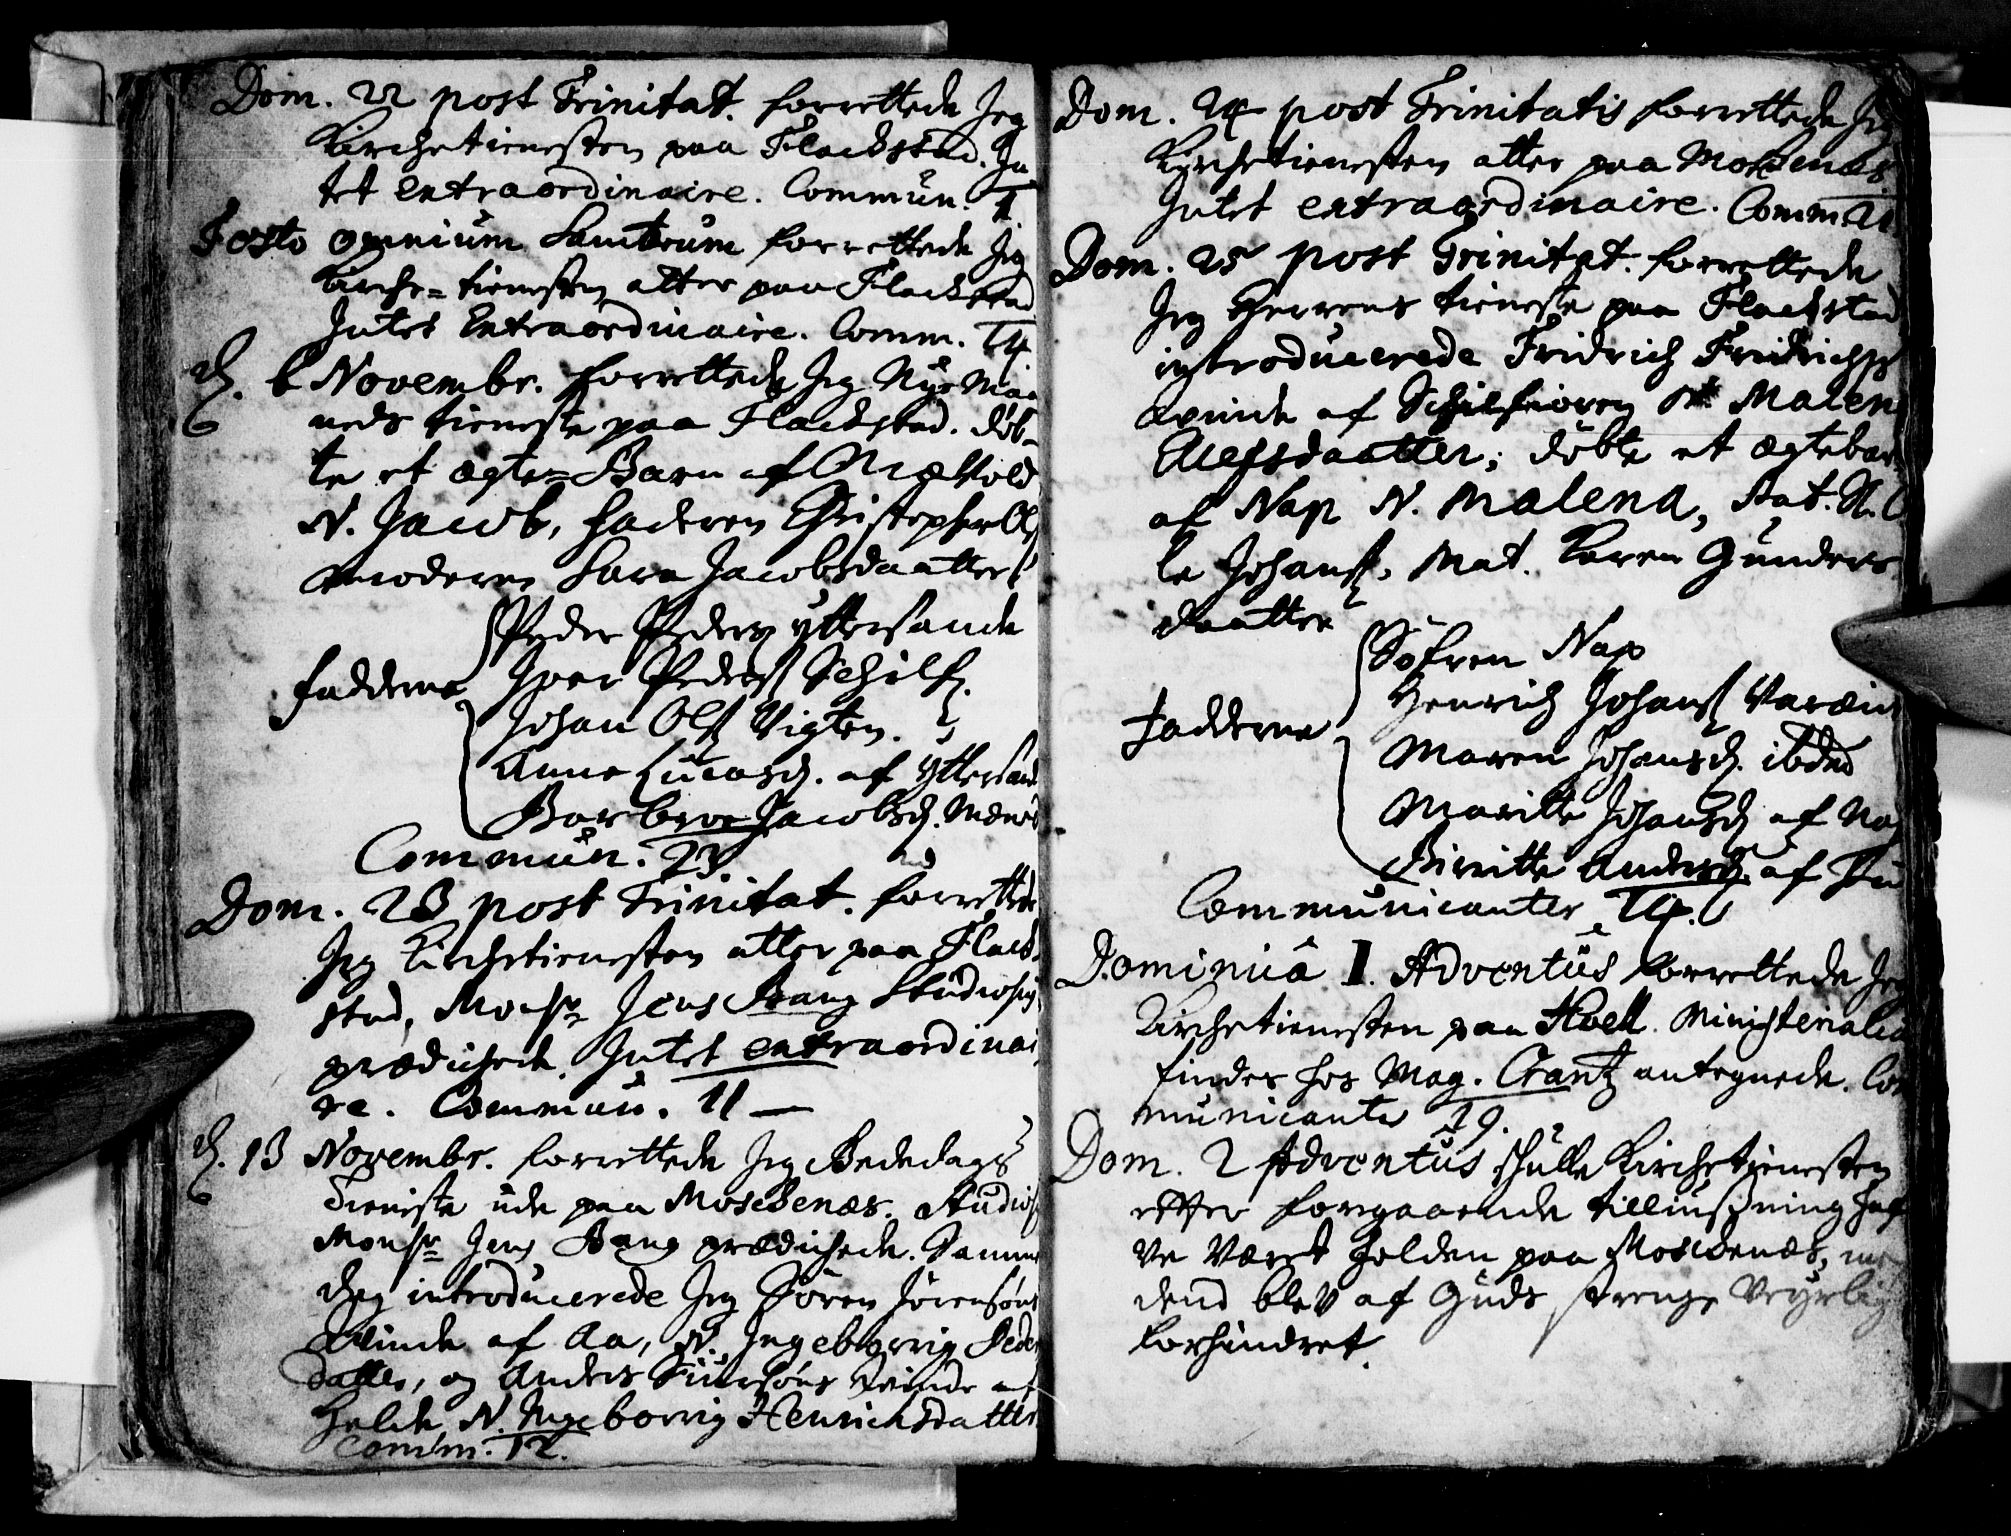 Dom. 22 post Trinitat. forrettede Jeg
Kirchetienesten paa Flackstad. In
tet extraordinaire. Commun. 1
Festo omnium Sanctorum forrettede Jeg
Kirche-tienesten atter paa Flackstad
Intet Extraordinaire. Comm. 14
d. 6 Novembr. forrettede Jeg Nye Maa
neds tieneste paa Flackstad. døb-
te et ægte-Barn af
N. Jacob, faderen Christopher
moderen Sara Jacobsdaatter
Peder Peders yttersande
Faddere Iver Peders Schilf.
Johan Ols Vigten.
Anne Lucasd. af yttersand
Barbroe Jacobsd.
Commun. 23
Dom. 23 post Trinitat. forrettede
Jeg Kirchetienesten atter paa Flack-
stad, Monsr Jens Bang Studiosus
prædichede. Intet extraordinai
re. Commun. 11 —
d. 13 Novembr. forrettede Jeg Bededags
Tieneste ude paa Moschenæs. Studios
Monsr Jens Bang prædichede. Samme
dag introducerede Jeg Sören Jörensöns
Quinde af Aa, N. Ingeborrig Peders
datter, og Anders Siursöns Quinde af
Helde N. Ingeborrig Henrichsdatter
Comm. 12.
Dom. 24 post Trinitatis forrettede Jeg
Kirchetienesten atter paa Moschenæs
Intet extraordinaire. Comm. 21
Dom. 25 post Trinitat. forrettede
Jeg Herrens tieneste paa Flackstad
introducerede Fridrich Fridrichs
Quinde af Schilfioren Malen
daatter; døbte et ægtebarn
af Nap N. Malena, Pat.
le Johans, Mat. Karen Gunders
daatter
Söfren Nap
Henrich Johans
Fadderne
Maren Johansd. ibd
Maritte Johansd af Nap
Birritte Andersd af
Communicanter 14.
Dominica I. Adventus forrettede Jeg
Kirchetienesten paa Hoell. Ministerialia
findes hos Mag. Crantz antegnede. Com
municanter 19.
Dom. 2 Adventus skulle Kirchetienesten
efter forgaaende tilliusning haf
ve været holden paa Moschenæs, men
dend blev af Guds strenge Veyrlig
forhindret.